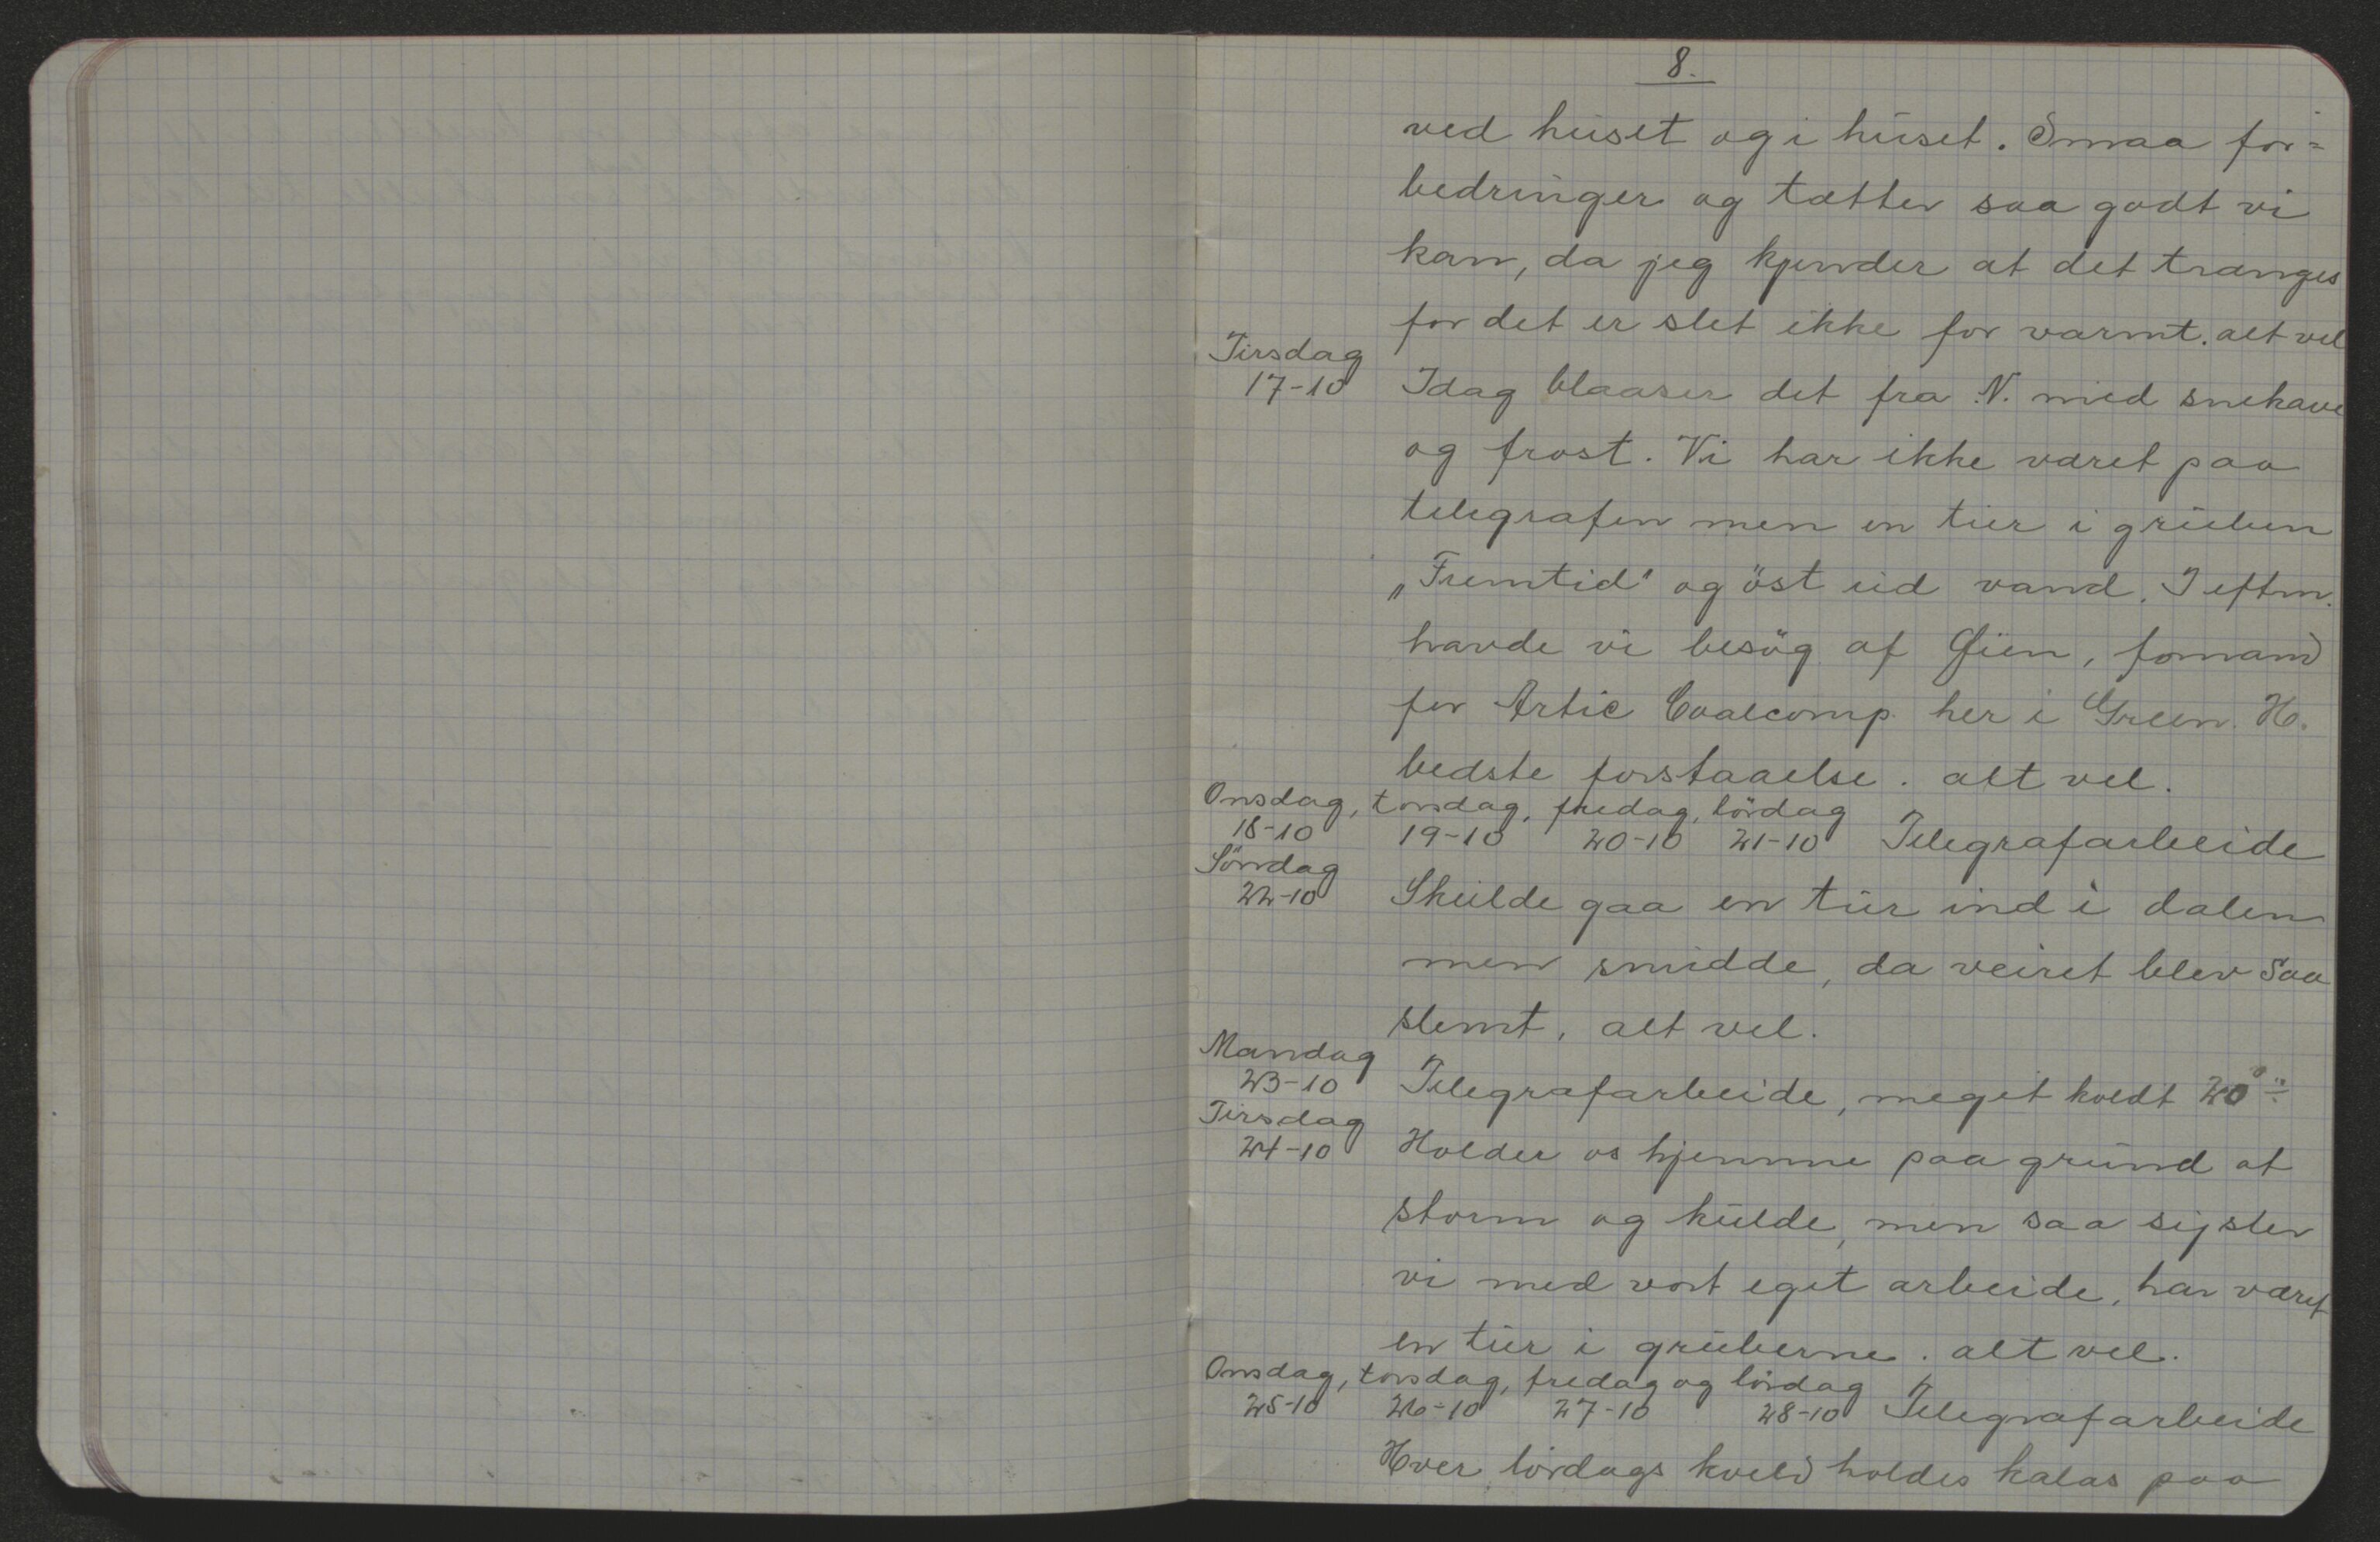 8.
ved huset og i huset. Smaa for=
bedringer og tætter saa godt vi
kan, da jeg kjender at det trænges
for det er slet ikke for varmt. alt vel
Tirsdag
17-10 Idag blaaser det fra N. med snekave
og frost. Vi har ikke været paa
telegrafen men en tur i gruben
„Fremtid" og öst ud vand. I eftm.
havde vi besög af , formand
for Artic Coalcomp. her i Green. H.
bedste forstaaelse. alt vel.
Onsdag, torsdag, fredag, lördag
18-10 19-10 20-10 21-10 Telegrafarbeide
Söndag
22-10 Skulde gaa en tur ind i dalen
men snudde, da veiret blev saa
slemt, alt vel.
Mandag
23-10 Telegrafarbeide, meget koldt 20° ÷
Tirsdag
24-10 Holder os hjemme paa grund at
storm og kulde, men saa sysler
vi med vort eget arbeide, har været
en tur i gruberne. alt vel.
Onsdag, torsdag, fredag og lördag
25-10 26-10 27-10 28-10 Telegrafarbeide
Hver lördags kveld holdes kalas paa